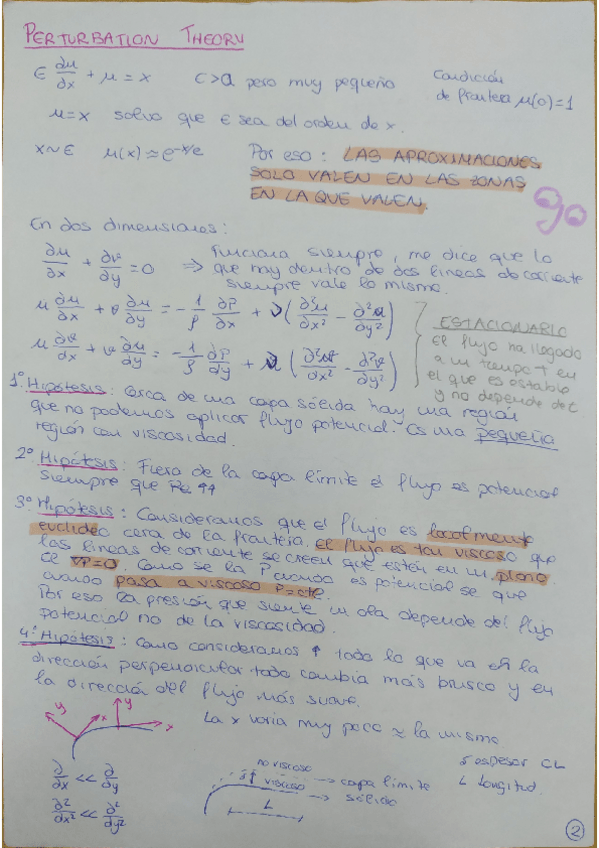 PERTURBATION THEORY
ϵ ∂u/∂x + u = x    ϵ>0 pero muy pequeño    Condición
de frontera u(0)=1
u=x salvo que ϵ sea del orden de x.
x~ϵ    u(x) ≈ e^(-x/ϵ)    Por eso: LAS APROXIMACIONES
SOLO VALEN EN LAS ZONAS
EN LA QUE VALEN.
En dos dimensiones:
∂u/∂x + ∂v/∂y = 0 ⇒ Funciona siempre, me dice que lo
que hay dentro de dos lineas de corriente
siempre vale lo mismo.
u ∂u/∂x + v ∂u/∂y = - 1/ρ ∂P/∂x + ν (∂²u/∂x² - ∂²u/∂y²)
u ∂v/∂x + v ∂u/∂y = - 1/ρ ∂P/∂y + ν (∂²v/∂x² - ∂²v/∂y²)
ESTACIONARIO
El flujo ha llegado
a un tempo t en
el que es estable
y no depende de t
1º Hipótesis: Cerca de una capa sólida hay una región
que no podemos aplicar flujo potencial. Es una pequeña
región con viscosidad.
2º Hipótesis: Fuera de la capa límite el flujo es potencial
siempre que Re ↑↑
3º Hipótesis: Consideramos que el flujo es localmente
euclideo cerca de la frontera, el flujo es tan viscoso que
las lineas de corriente se creen que están en un plano.
el ∇P=0. Como se la P cuando es potencial se que
cuando pasa a viscoso P=cte.
Por eso la presión que siente un ala depende del flujo
potencial no de la viscosidad.
4º Hipótesis: Como consideramos ↑ todo lo que va en la
dirección perpendicular todo cambia más brusco y en
la dirección del flujo más suave.
y x y x
La x varia muy poco ≈ la misma.
∂/∂x << ∂/∂y
∂²/∂x² << ∂²/∂y²
no viscoso
δ viscoso → capa límite
→ sólido
L
δ espesor CL
L longitud.
2